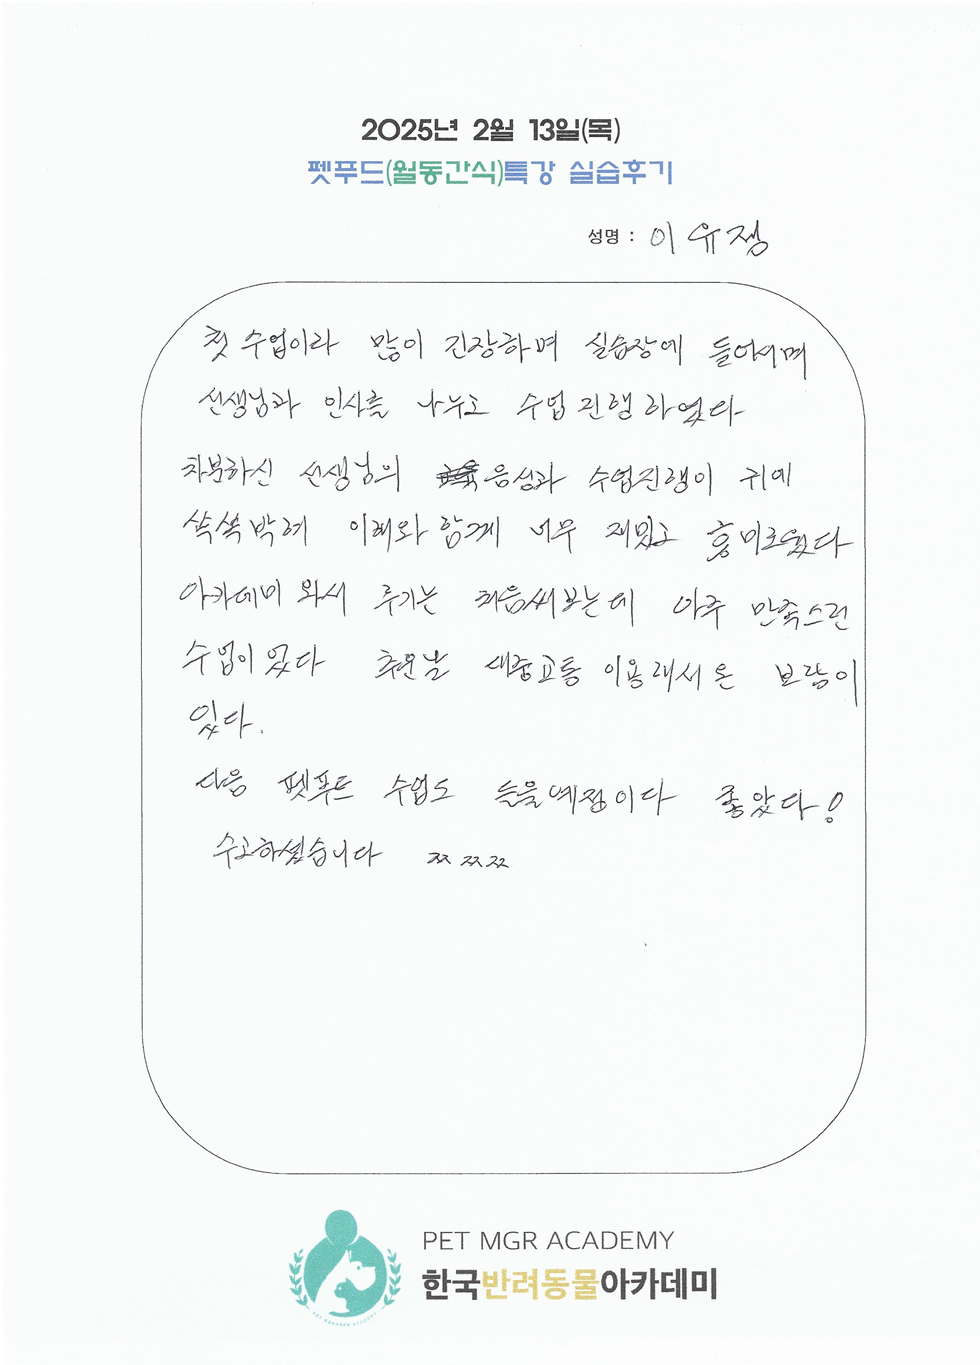 2025년 2월 13일(목)
펫푸드(월동간식)특강 실습후기
성명 : 이유정
첫 수업이라 많이 긴장하며 실습장에 들어서며
선생님과 인사를 나누고 수업 진행하였다
차분하신 선생님의 음성과 수업진행이 귀에
쏙쏙박혀 이해와 함께 너무 재밌고 흥미로웠다
아카데미 와서 후기는 처음써보는데 아주 만족스런
수업이었다 추운날 대중교통 이용해서온 보람이
있다.
다음 펫푸드 수업도 들을예정이다 좋았다!
수고하셨습니다 ㅉㅉㅉ
PET MGR ACADEMY
한국반려동물아카데미